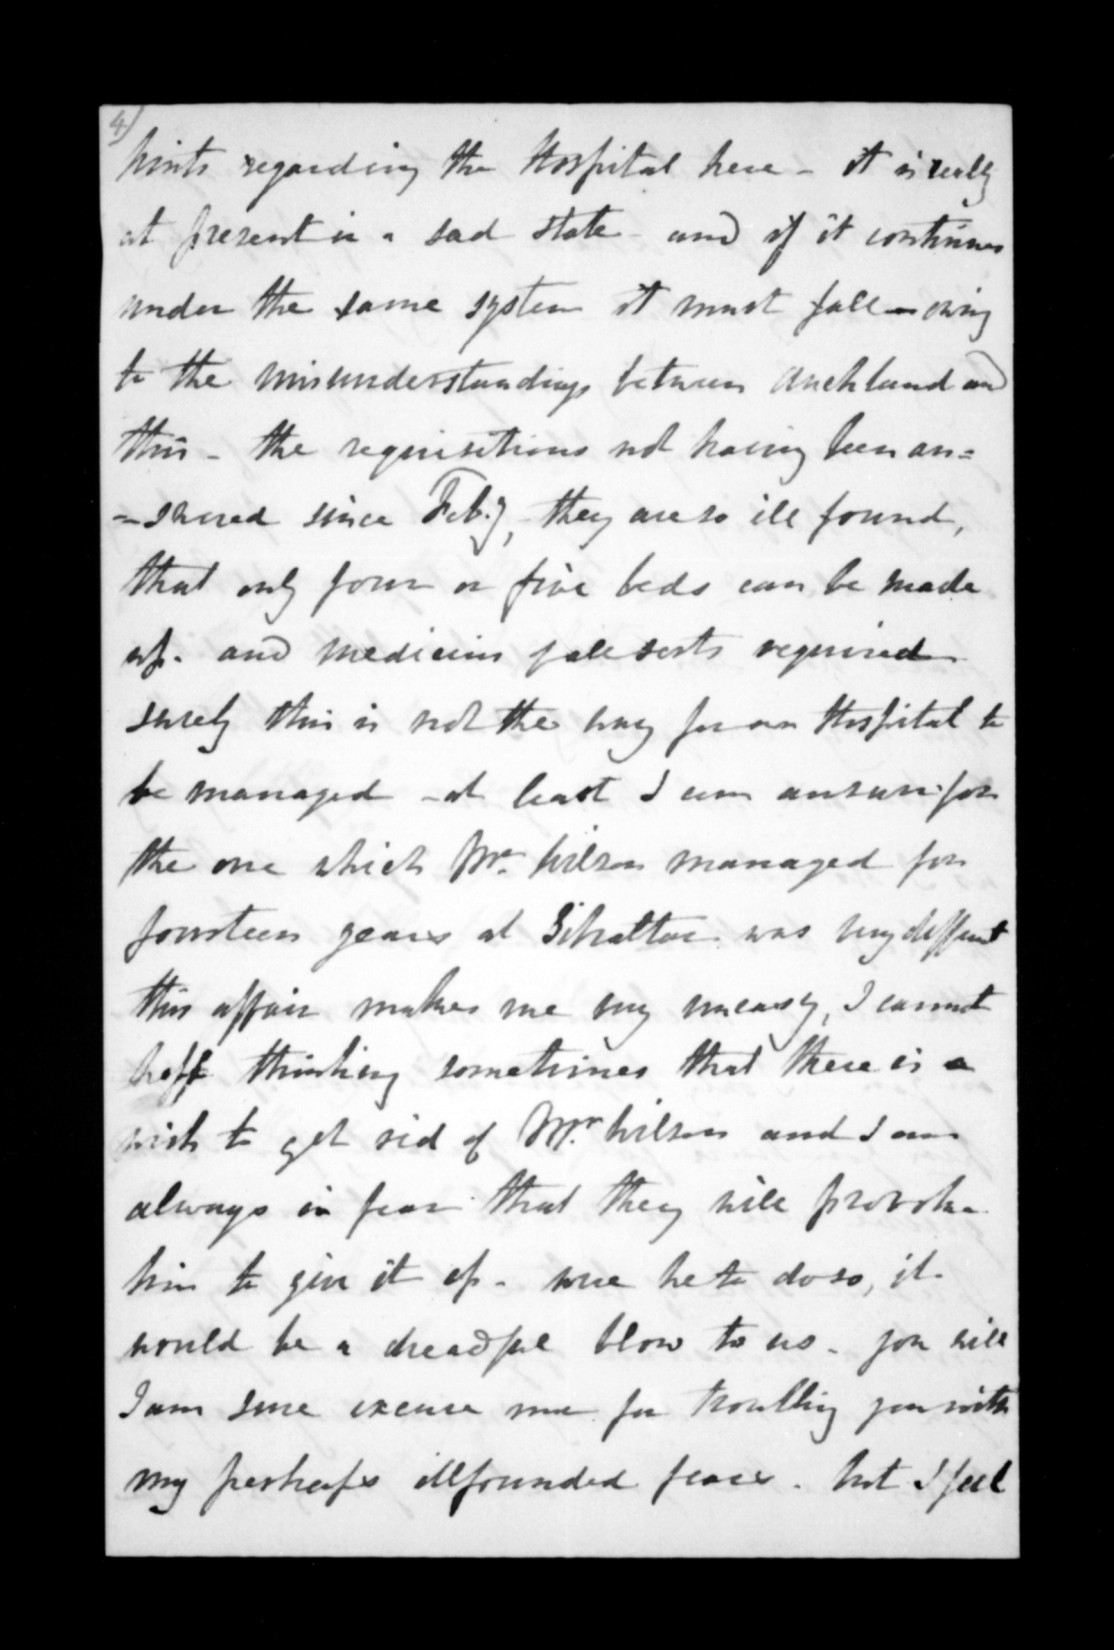 4)
hints regarding the Hospital here - it is really
at present in a sad state - and if it continues
under the same system it must fall - owing
to the misunderstandings between Auckland and
this - the requisitions not having been an=
=swered since Feby, they are so ill found,
that only four or five beds can be made
up. and medicines of all sorts required
surely this is not the way for an Hospital to
be managed - at least I am answer for
the one which Mr. Wilson managed for
fourteen years at Gibraltar was very different
this affair makes me very uneasy, I cannot
help thinking sometimes that there is a
wish to get rid of Mr. Wilson and I am
always in fear that they will provoke
him to give it up - were he to do so, it
would be a dreadful blow to us - you will
I am sure excuse me for troubling you with
my perhaps illfounded fears. but I feel